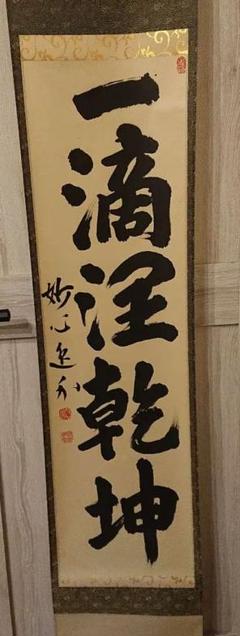 一滴潤乾坤
妙心